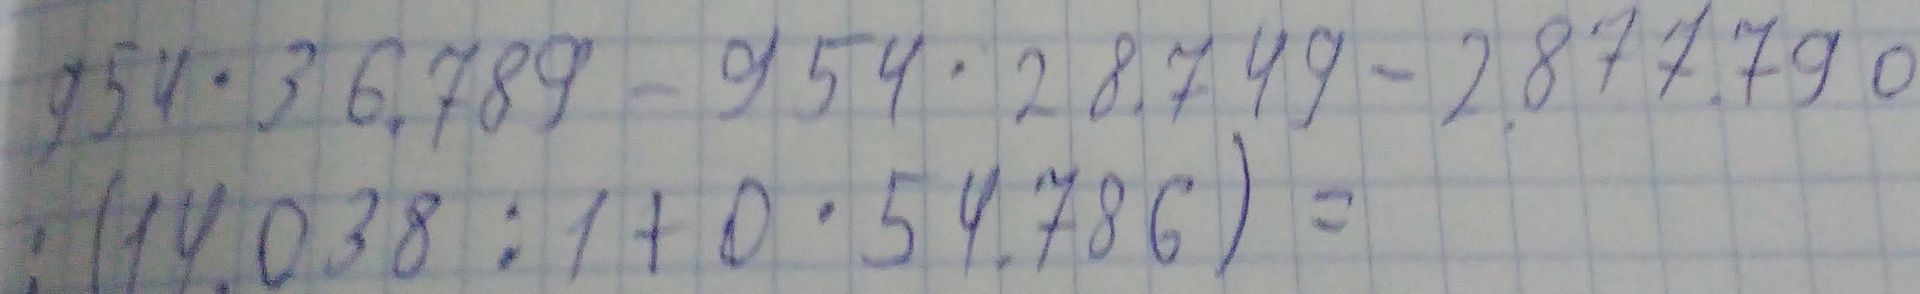 954·36.789-954·28.749-2.877.790
:(14.038:1+0·54.786)=